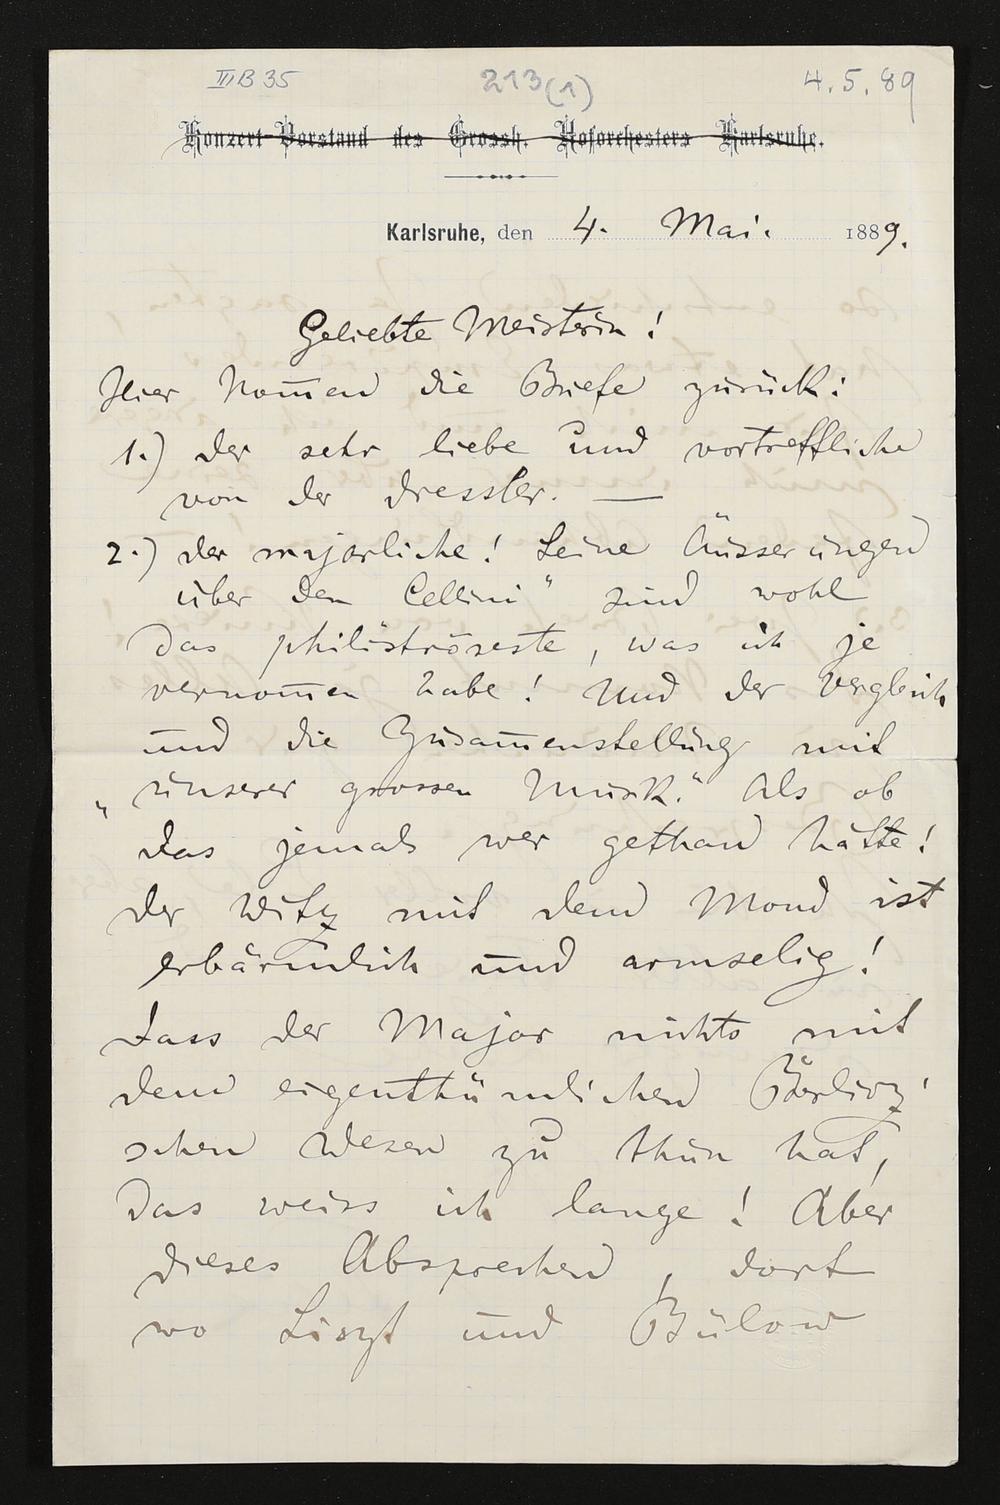 III B 35
213(1)
4.5.89
Konzert-Vorstand des Grossh. Hoforchesters Karlsruhe.
Karlsruhe, den 4. Mai. 1889.
Geliebte Meisterin!
Hier kom̄en die Briefe zurück:
1.) der sehr liebe und vortreffliche
von der Dressler. —
2.) der majorliche! Seine Äusserungen
über den Cellini" sind wohl
das philiströseste, was ich je
vernom̄en habe! Und der Vergleich
und die Zusam̄enstellung mit
„unserer grossen Musik." Als ob
das jemals wer gethan hätte!
Der Witz mit dem Mond ist
erbärmlich und armselig!
Dass der Major nichts mit
dem eigenthümlichen Berlioz'
schen Wesen zu thun hat,
das weiss ich lange! Aber
dieses Absprechen, dort
wo Liszt und Bülow